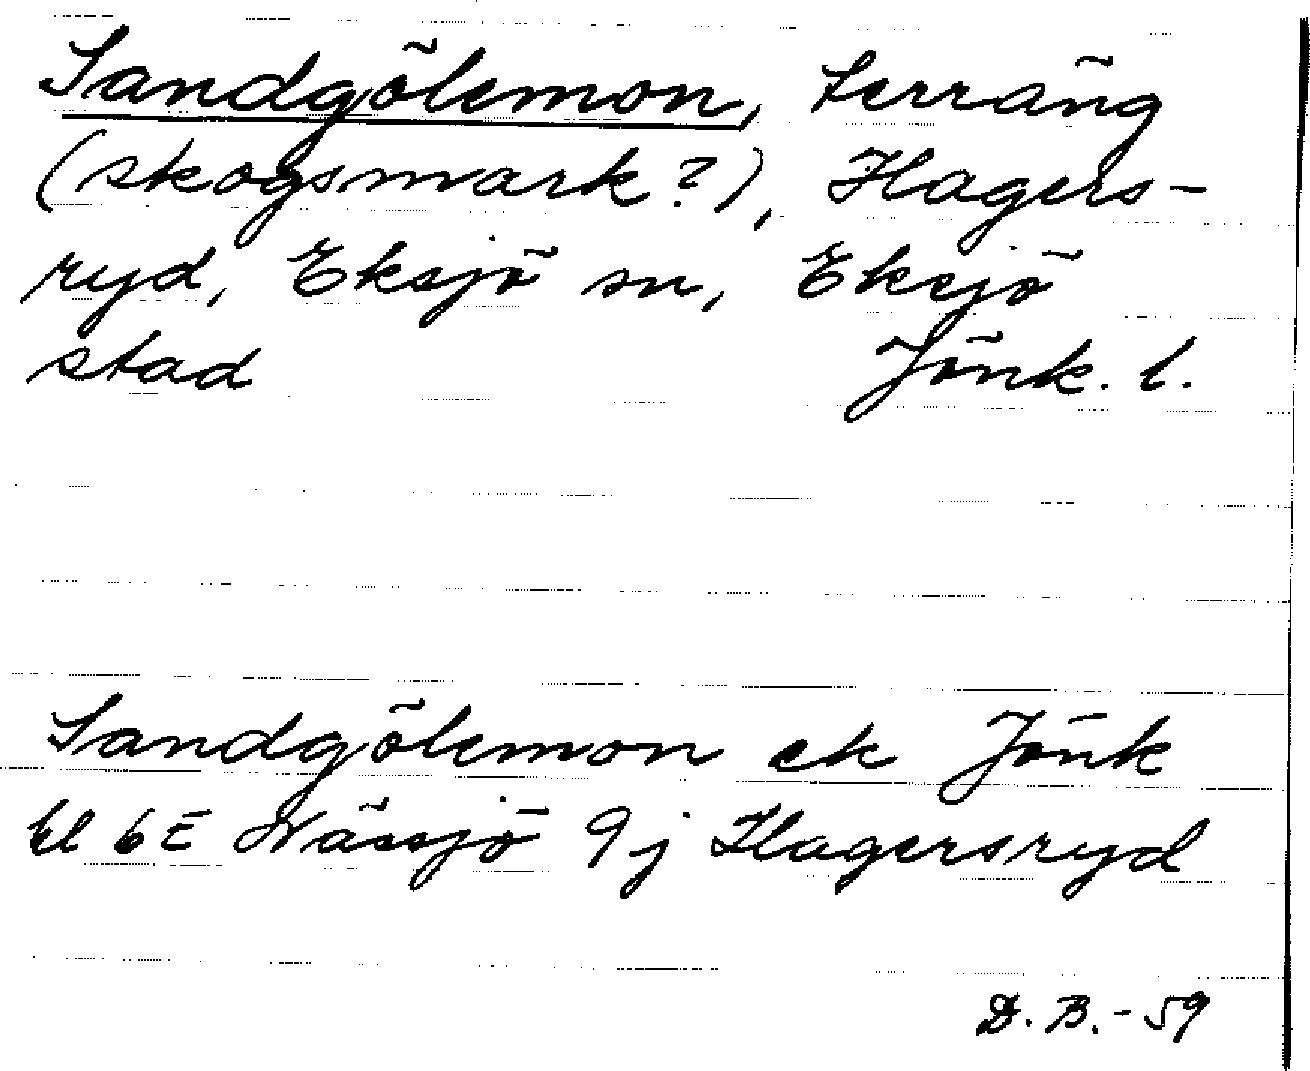 Sandgölemon, terräng
(skogsmark?), Hagers-
ryd, Eksjö sn, Eksjö
stad Jönk. l.
Sandgölemon ek Jönk
bl 6E Nässjö 9j Hagersryd
D. B. - 59